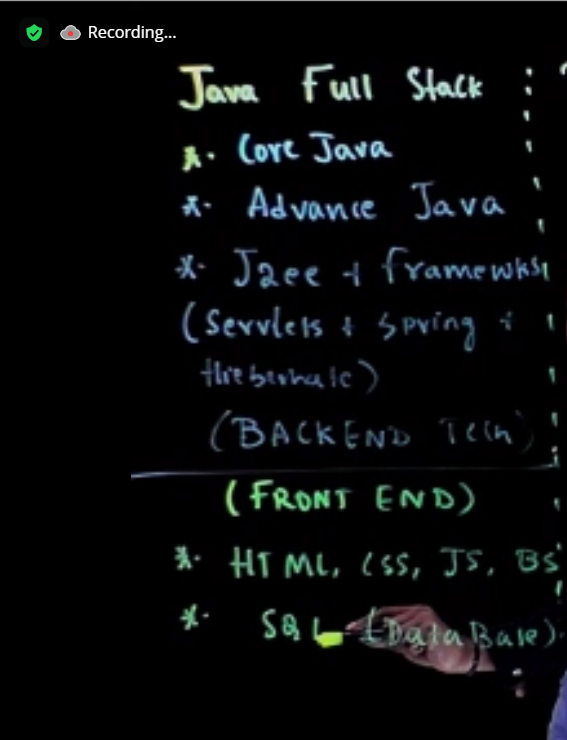 Recording...
Java Full Stack
*. Core Java
*. Advance Java
*. J2ee + framewks
(Servlets + Spring +
Hiebernate)
(BACKEND Tech)
(FRONT END)
*. HTML, CSS, JS, BS
*. SQL (DataBase).